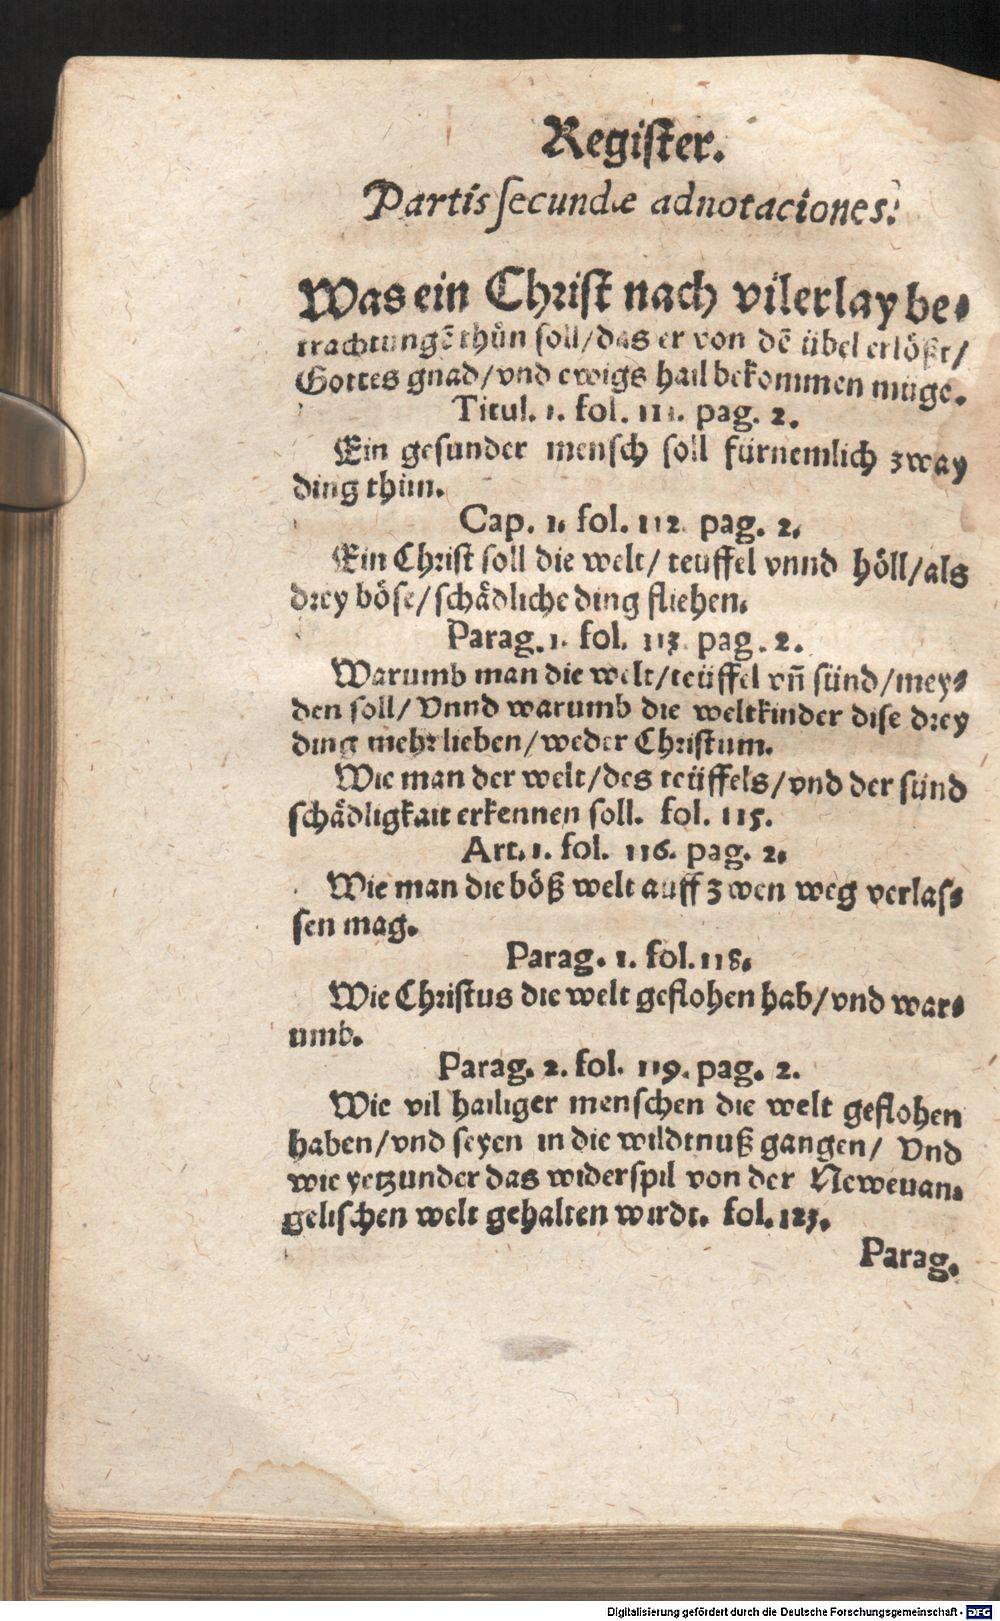 Register.
Partis secundæ adnotaciones:
Was ein Christ nach vilerlay be-
trachtungē thůn soll/das er von dē übel erlößt/
Gottes gnad/vnd ewigs hail bekommen müge.
Titul. 1. fol. 111. pag. 2.
Ein gesunder mensch soll fürnemlich zway
ding thun.
Cap. 1. fol. 112. pag. 2.
Ein Christ soll die welt/ teuffel vnnd höll/als
drey böse/schådliche ding fliehen.
Parag. 1. fol. 113. pag. 2.
Warumb man die welt/teüffel vñ sünd/mey-
den soll/ Vnnd warumb die weltkinder dise drey
ding mehr lieben/weder Christum.
Wie man der welt/des teüffels/vnd der sünd
schådligkait erkennen soll. fol. 115.
Art. 1. fol. 116. pag. 2.
Wie man die böß welt auff zwen weg verlas-
sen mag.
Parag. 1. fol. 118.
Wie Christus die welt geflohen hab/vnd war-
umb.
Parag. 2. fol. 119. pag. 2.
Wie vil hailiger menschen die welt geflohen
haben/vnd seyen in die wildtnuß gangen/ Vnd
wie yetzunder das widerspil von der Neweuan-
gelischen welt gehalten wirdt. fol. 123.
Parag.
Digitalisierung gefördert durch die Deutsche Forschungsgemeinschaft - DFG